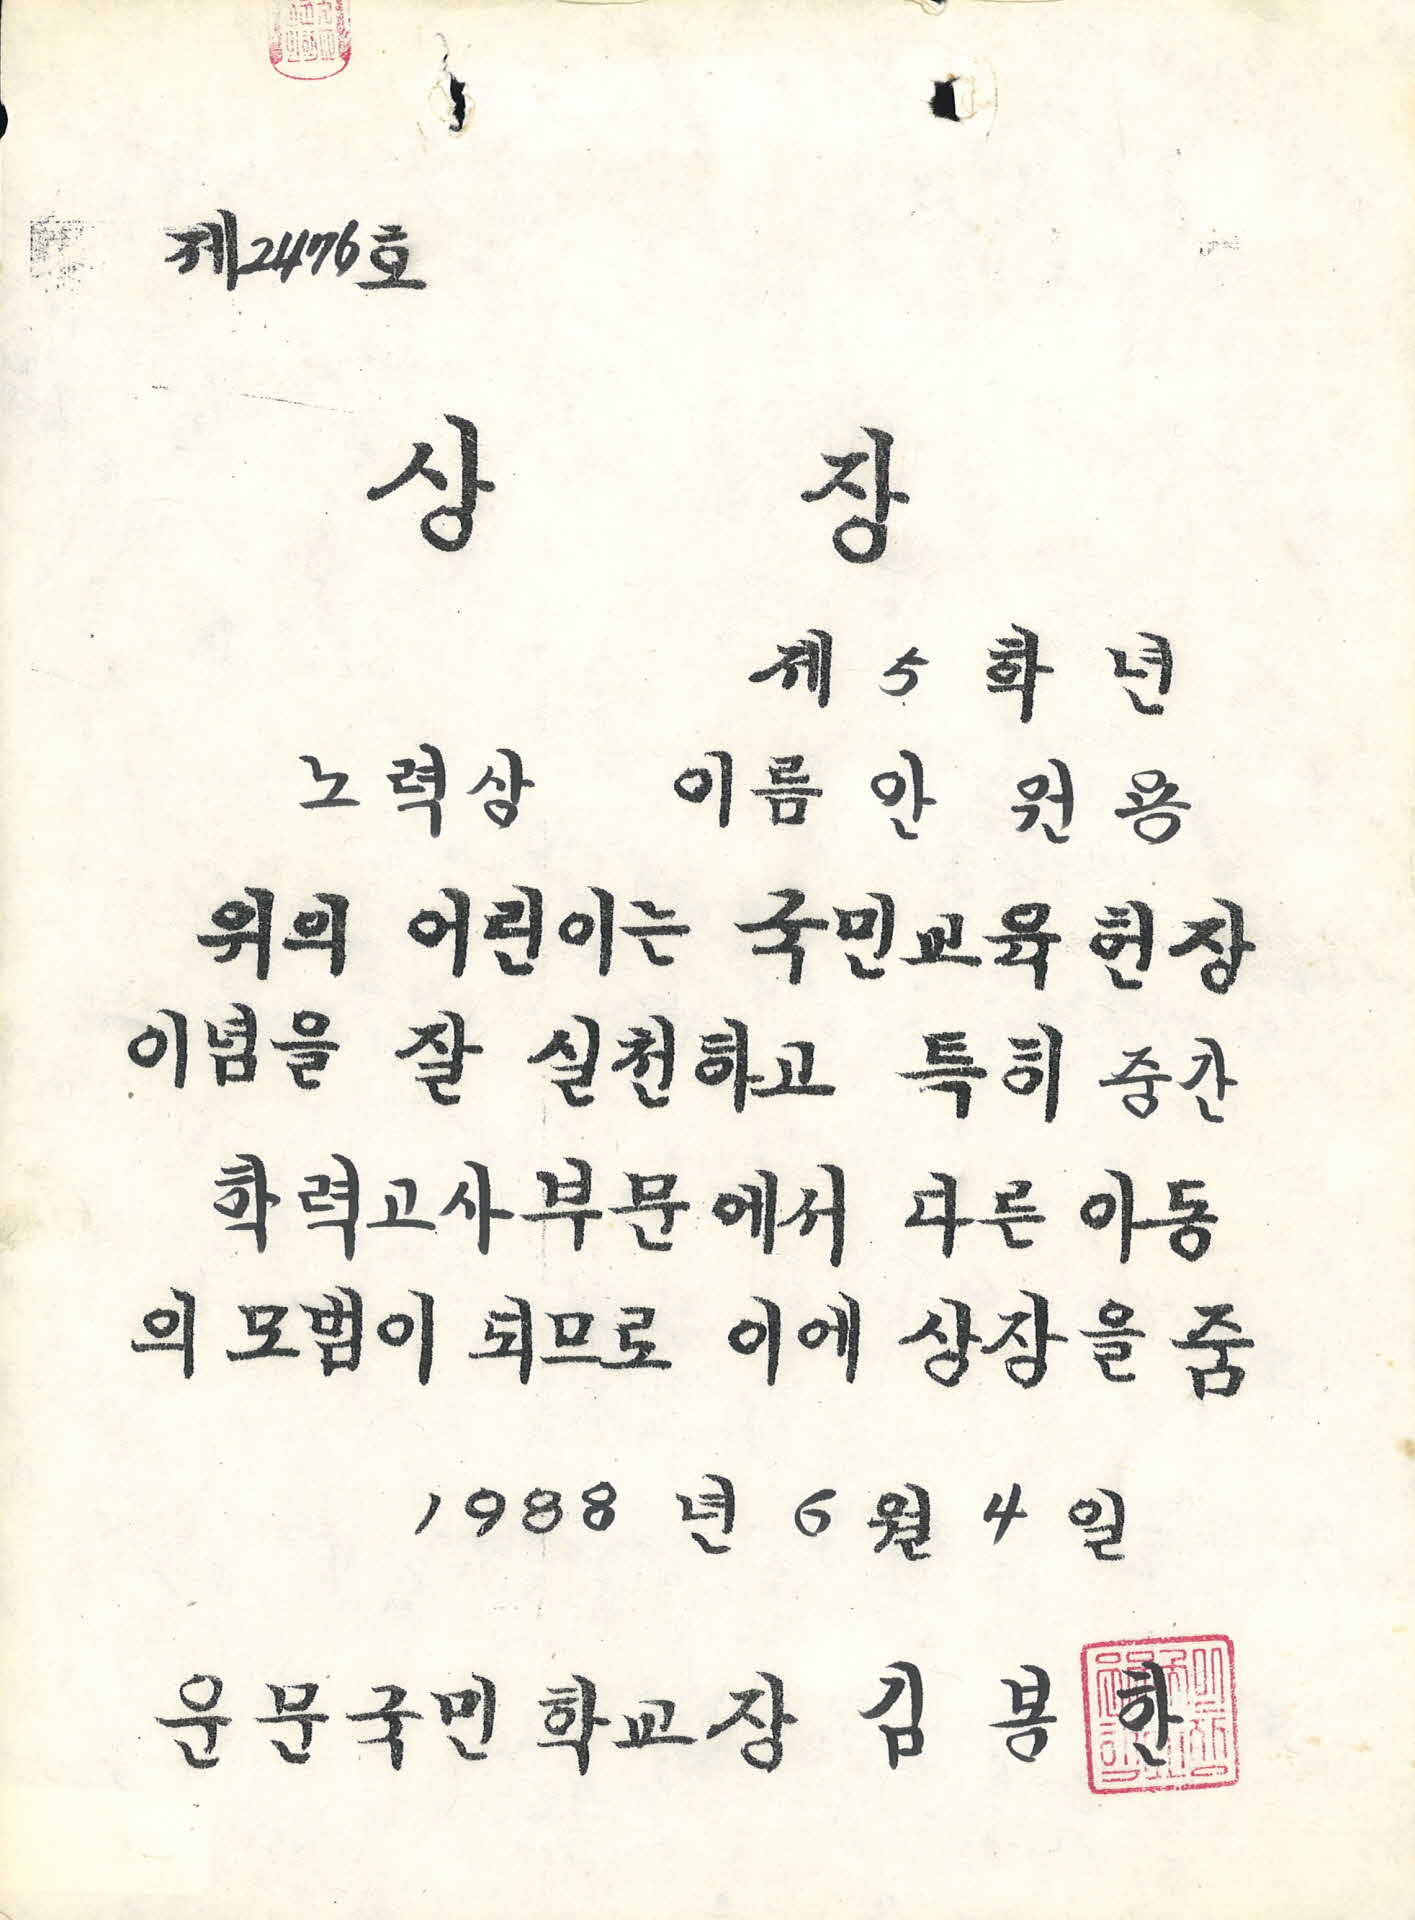 제2476호
상 장
제 5 학 년
노력상 이름 안 원 용
위의 어린이는 국민교육헌장
이념을 잘 실천하고 특히 중간
학력고사부문에서 다른 아동
의 모범이 되므로 이에 상장을 줌
1988 년 6 월 4 일
운문국민학교장 김 봉 한